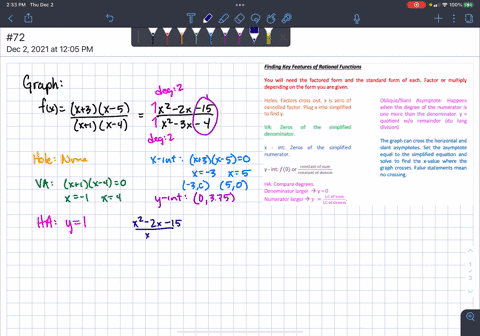 2:33 PM Thu Dec 2
85%
#72
Dec 2, 2021 at 12:05 PM
Graph:
deg: 2
f(x) = (x+3)(x-5) / (x+1)(x-4) = x² - 2x - 15 / x² - 3x - 4
deg: 2
Hole: None
VA: (x+1)(x-4) = 0
x = -1 x = 4
HA: y = 1
x-int: (x+3)(x-5) = 0
x = -3 x = 5
(-3, 0) (5, 0)
y-int: (0, 3.75)
x² - 2x - 15
x
Finding Key Features of Rational Functions
You will need the factored form and the standard form of each. Factor or multiply
depending on the form you are given.
Holes: Factors cross out. x is zero of
cancelled factor. Plug x into simplified
to find y.
VA: Zeros of the simplified
denominator.
x - int: Zeros of the simplified
numerator.
y - int: f(0) or constant of num / constant of denom
HA: Compare degrees.
Denominator larger → y = 0
Numerator larger → y = LC of num / LC of denom
Oblique/Slant Asymptote: Happens
when the degree of the numerator is
one more than the denominator. y =
quotient w/o remainder (do long
division)
The graph can cross the horizontal and
slant asymptotes. Set the asymptote
equal to the simplified equation and
solve to find the x-value where the
graph crosses. False statements mean
no crossing.